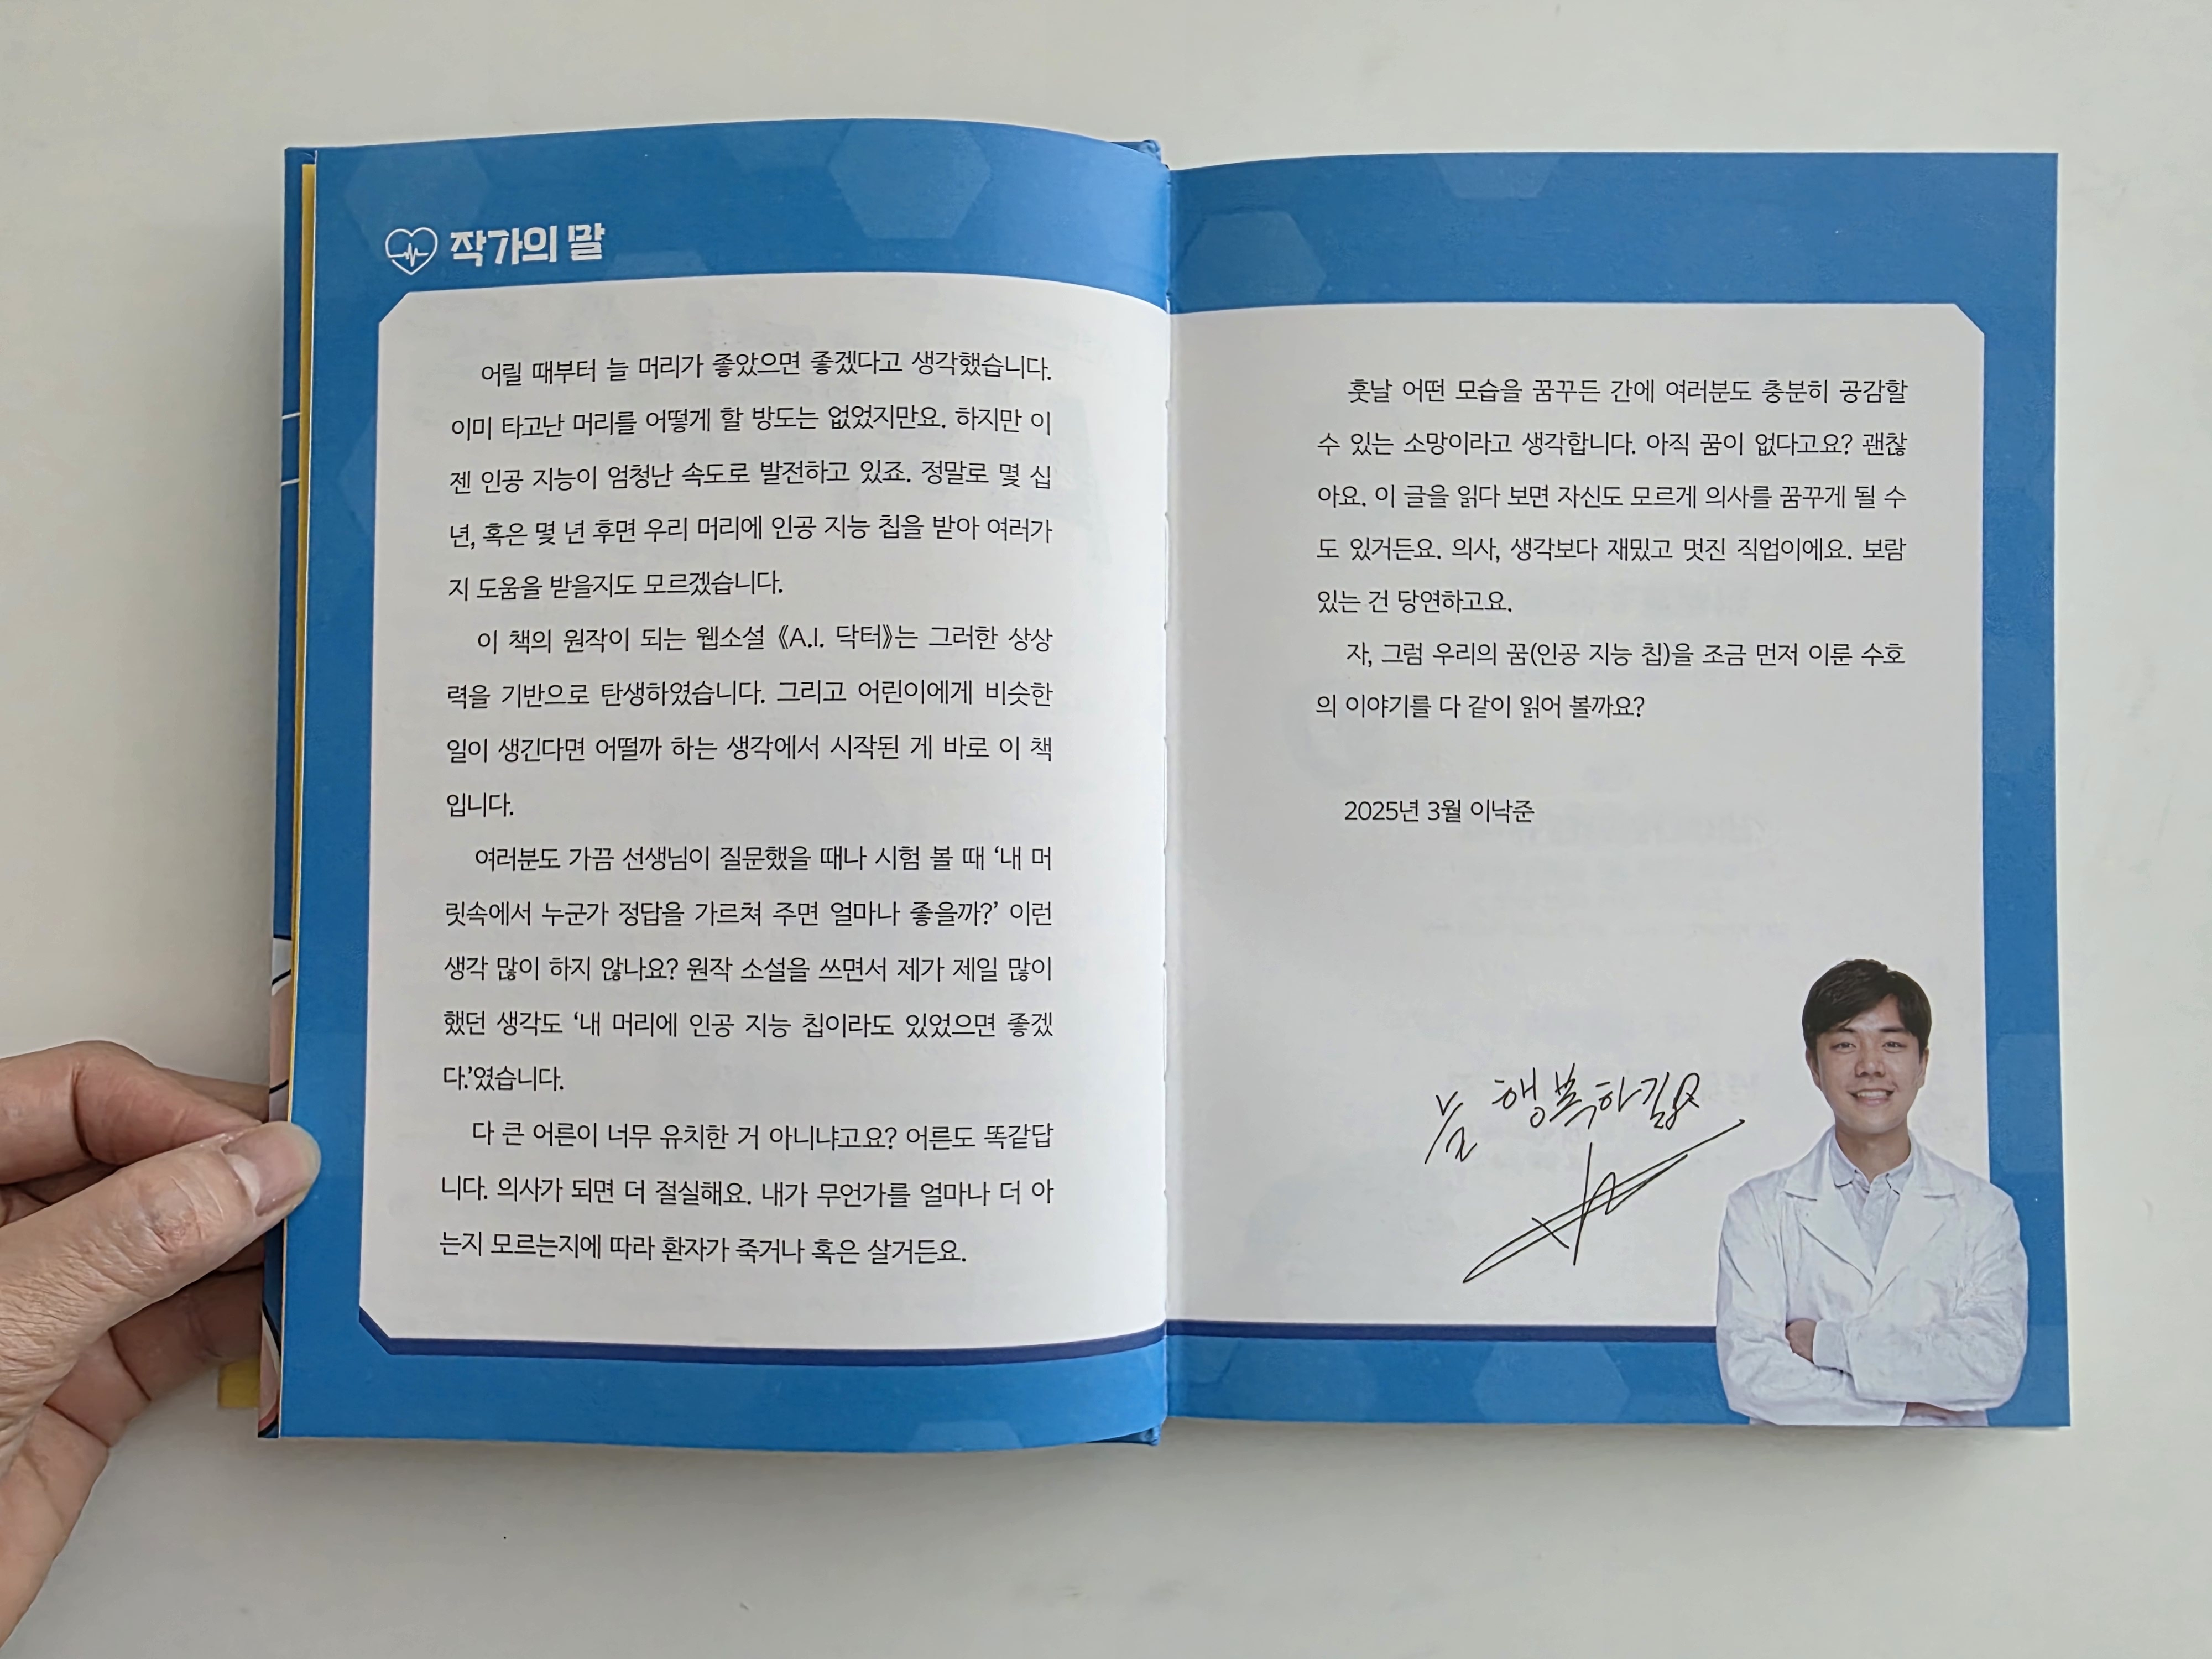 작가의 말
어릴 때부터 늘 머리가 좋았으면 좋겠다고 생각했습니다.
이미 타고난 머리를 어떻게 할 방도는 없었지만요. 하지만 이
젠 인공 지능이 엄청난 속도로 발전하고 있죠. 정말로 몇 십
년, 혹은 몇 년 후면 우리 머리에 인공 지능 칩을 받아 여러가
지 도움을 받을지도 모르겠습니다.
이 책의 원작이 되는 웹소설 《A.I. 닥터》는 그러한 상상
력을 기반으로 탄생하였습니다. 그리고 어린이에게 비슷한
일이 생긴다면 어떨까 하는 생각에서 시작된 게 바로 이 책
입니다.
여러분도 가끔 선생님이 질문했을 때나 시험 볼 때 ‘내 머
릿속에서 누군가 정답을 가르쳐 주면 얼마나 좋을까?’ 이런
생각 많이 하지 않나요? 원작 소설을 쓰면서 제가 제일 많이
했던 생각도 ‘내 머리에 인공 지능 칩이라도 있었으면 좋겠
다.’였습니다.
다 큰 어른이 너무 유치한 거 아니냐고요? 어른도 똑같답
니다. 의사가 되면 더 절실해요. 내가 무언가를 얼마나 더 아
는지 모르는지에 따라 환자가 죽거나 혹은 살거든요.
훗날 어떤 모습을 꿈꾸든 간에 여러분도 충분히 공감할
수 있는 소망이라고 생각합니다. 아직 꿈이 없다고요? 괜찮
아요. 이 글을 읽다 보면 자신도 모르게 의사를 꿈꾸게 될 수
도 있거든요. 의사, 생각보다 재밌고 멋진 직업이에요. 보람
있는 건 당연하고요.
자, 그럼 우리의 꿈(인공 지능 칩)을 조금 먼저 이룬 수호
의 이야기를 다 같이 읽어 볼까요?
2025년 3월 이낙준
늘 행복하길